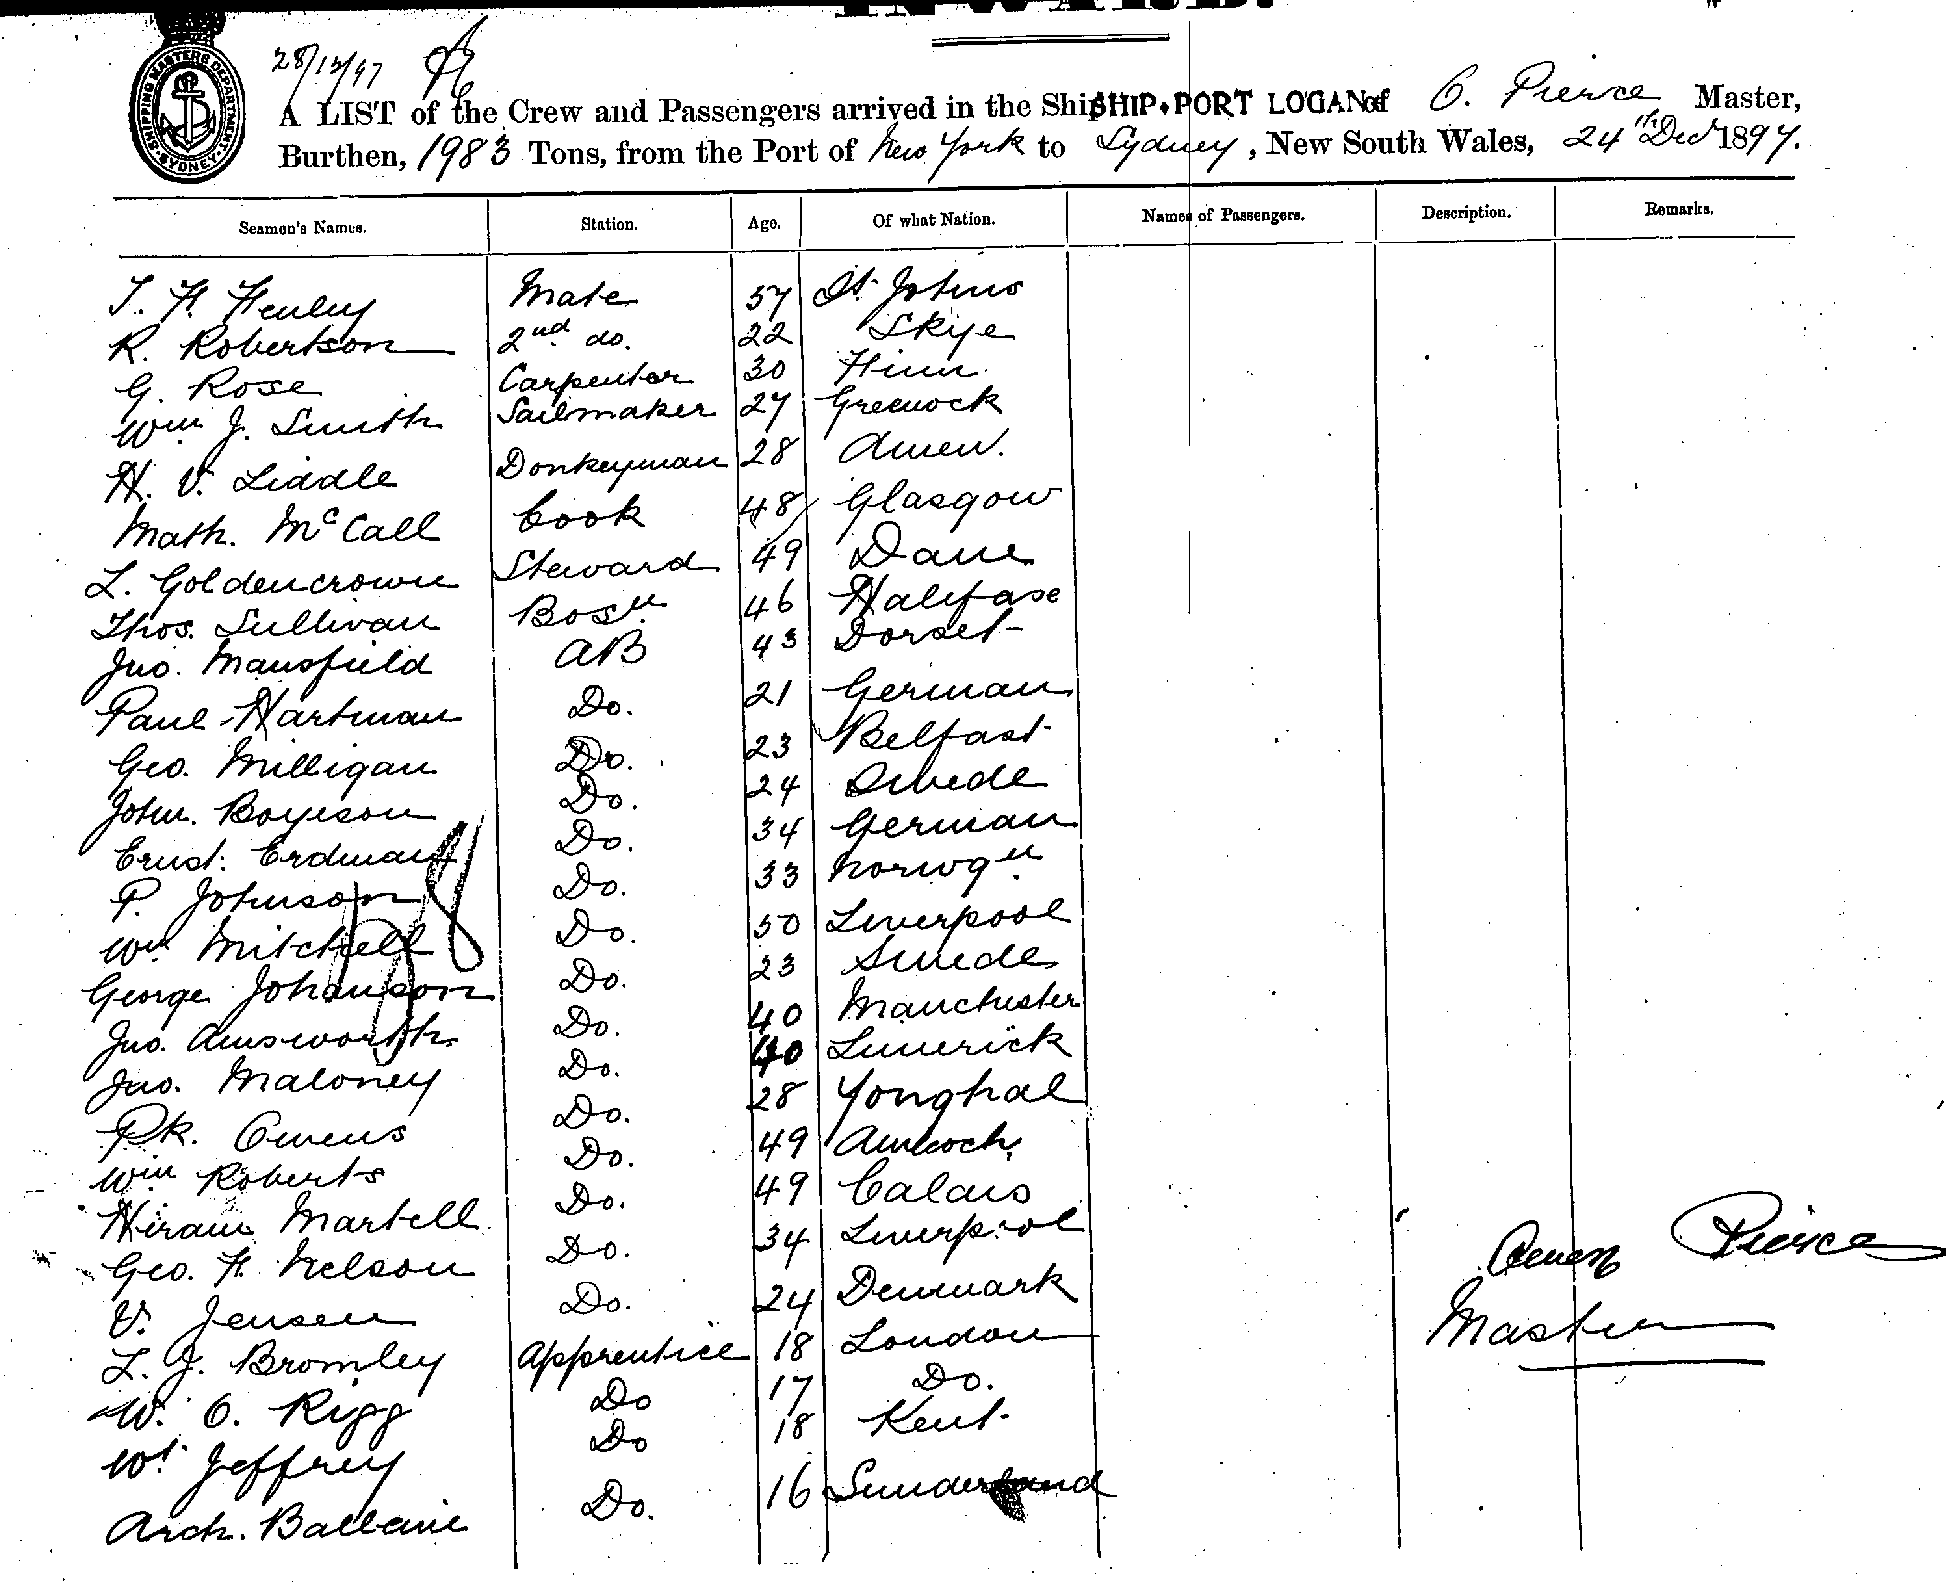 INWARD.
SHIPPING MASTERS DEPARTMENT SYDNEY
28/12/97
A LIST of the Crew and Passengers arrived in the Ship SHIP. PORT LOGAN of O. Pierce Master,
Burthen, 1983 Tons, from the Port of New York to Sydney, New South Wales, 24th Decr 1897.
Seamen's Names. Station. Age. Of what Nation. Names of Passengers. Description. Remarks.
T. H. Henley Mate 57 St. Johns
R. Robertson 2nd do. 22 Skye
G. Rose Carpenter 30
Wm J. Smith Sailmaker 27 Greenock
H. V. Liddle Donkeyman 28 Amen.
Math. McCall Cook 48 Glasgow
L. Goldencrown Steward 49 Dane
Thos. Sullivan Bosn 46 Halifax
Jno. Mansfield AB 43 Dorset
Paul Hartman Do. 21 German
Geo. Milligan Do. 23 Belfast
John. Boyeson Do. 24 Swede
Ernst. Erdman Do. 34 German
P. Johnson Do. 33 Norwgn
Wm Mitchell Do. 50 Liverpool
George Johanson Do. 23 Swede
Jno. Ainsworth Do. 40 Manchester
Jno. Maloney Do. 40 Limerick
Pk. Owens Do. 28 Yonghal
Wm Roberts Do. 49
Hiram Martell Do. 49 Calais
Geo. H. Nelson Do. 34 Liverpool
V. Jensen Do. 24 Denmark
L. J. Bromley Apprentice 18 London
W. O. Rigg Do 17 Do.
Wt Jeffrey Do 18 Kent
Arch. Ballaine Do. 16 Sunderland
Owen Pierce
Master